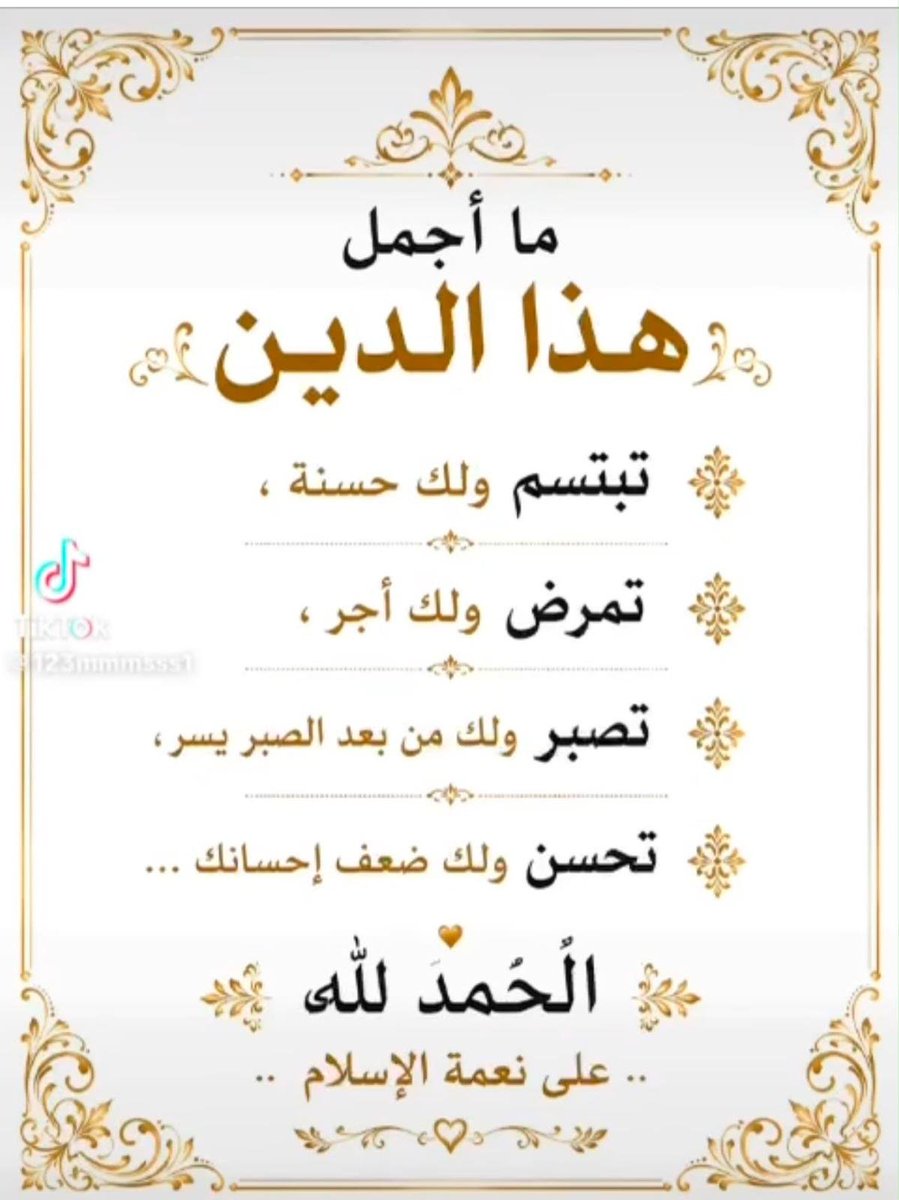 ما أجمل
هذا الدين
تبتسم ولك حسنة ،
تمرض ولك أجر ،
تصبر ولك من بعد الصبر يسر،
تحسن ولك ضعف إحسانك ...
الُحُمدَ لله
.. على نعمة الإسلام ..
TikTok
@123mmmssst